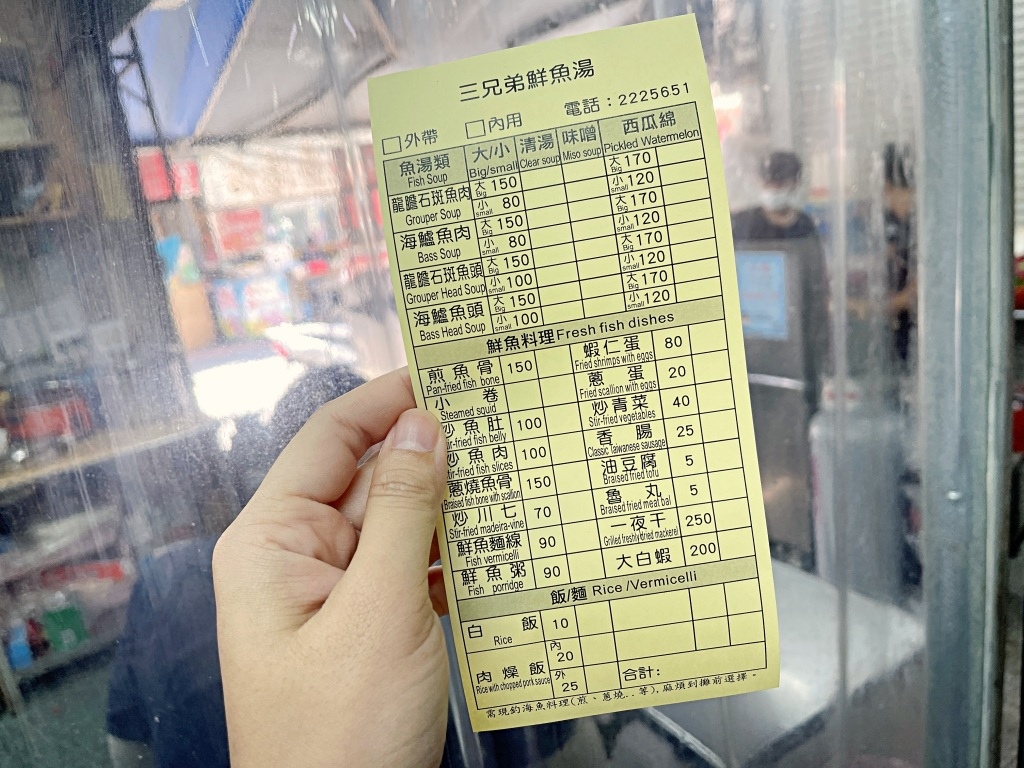 三兄弟鮮魚湯
□外帶 □內用 電話：2225651
魚湯類 大/小 清湯 味噌 西瓜綿
Fish Soup Big/small Clear soup Miso soup Pickled Watermelon
龍膽石斑魚肉 大 150 大 170
Grouper Soup Big Big
小 80 小 120
small small
海鱸魚肉 大 150 大 170
Bass Soup Big Big
小 80 小 120
small small
龍膽石斑魚頭 大 150 大 170
Grouper Head Soup Big Big
小 100 小 120
small small
海鱸魚頭 大 150 大 170
Bass Head Soup Big Big
小 100 小 120
small small
鮮魚料理 Fresh fish dishes
煎魚骨 150 蝦仁蛋 80
Pan-fried fish bone Fried shrimps with eggs
小卷 蔥蛋 20
Steamed squid Fried scallion with eggs
炒魚肚 100 炒青菜 40
Stir-fried fish belly Stir-fried vegetables
炒魚肉 100 香腸 25
Stir-fried fish slices Classic Taiwanese sausage
蔥燒魚骨 150 油豆腐 5
Braised fish bone with scallion Braised fried tofu
炒川七 70 魯丸 5
Stir-fried madeira-vine Braised fried meat bal
鮮魚麵線 90 一夜干 250
Fish vermicelli Grilled freshly dried mackerel
鮮魚粥 90 大白蝦 200
Fish porridge
飯/麵 Rice /Vermicelli
白飯 10
Rice
肉燥飯 內 20
Rice with chopped pork sauce 外 25
合計:
需現釣海魚料理(煎、蔥燒..等),麻煩到攤前選擇。